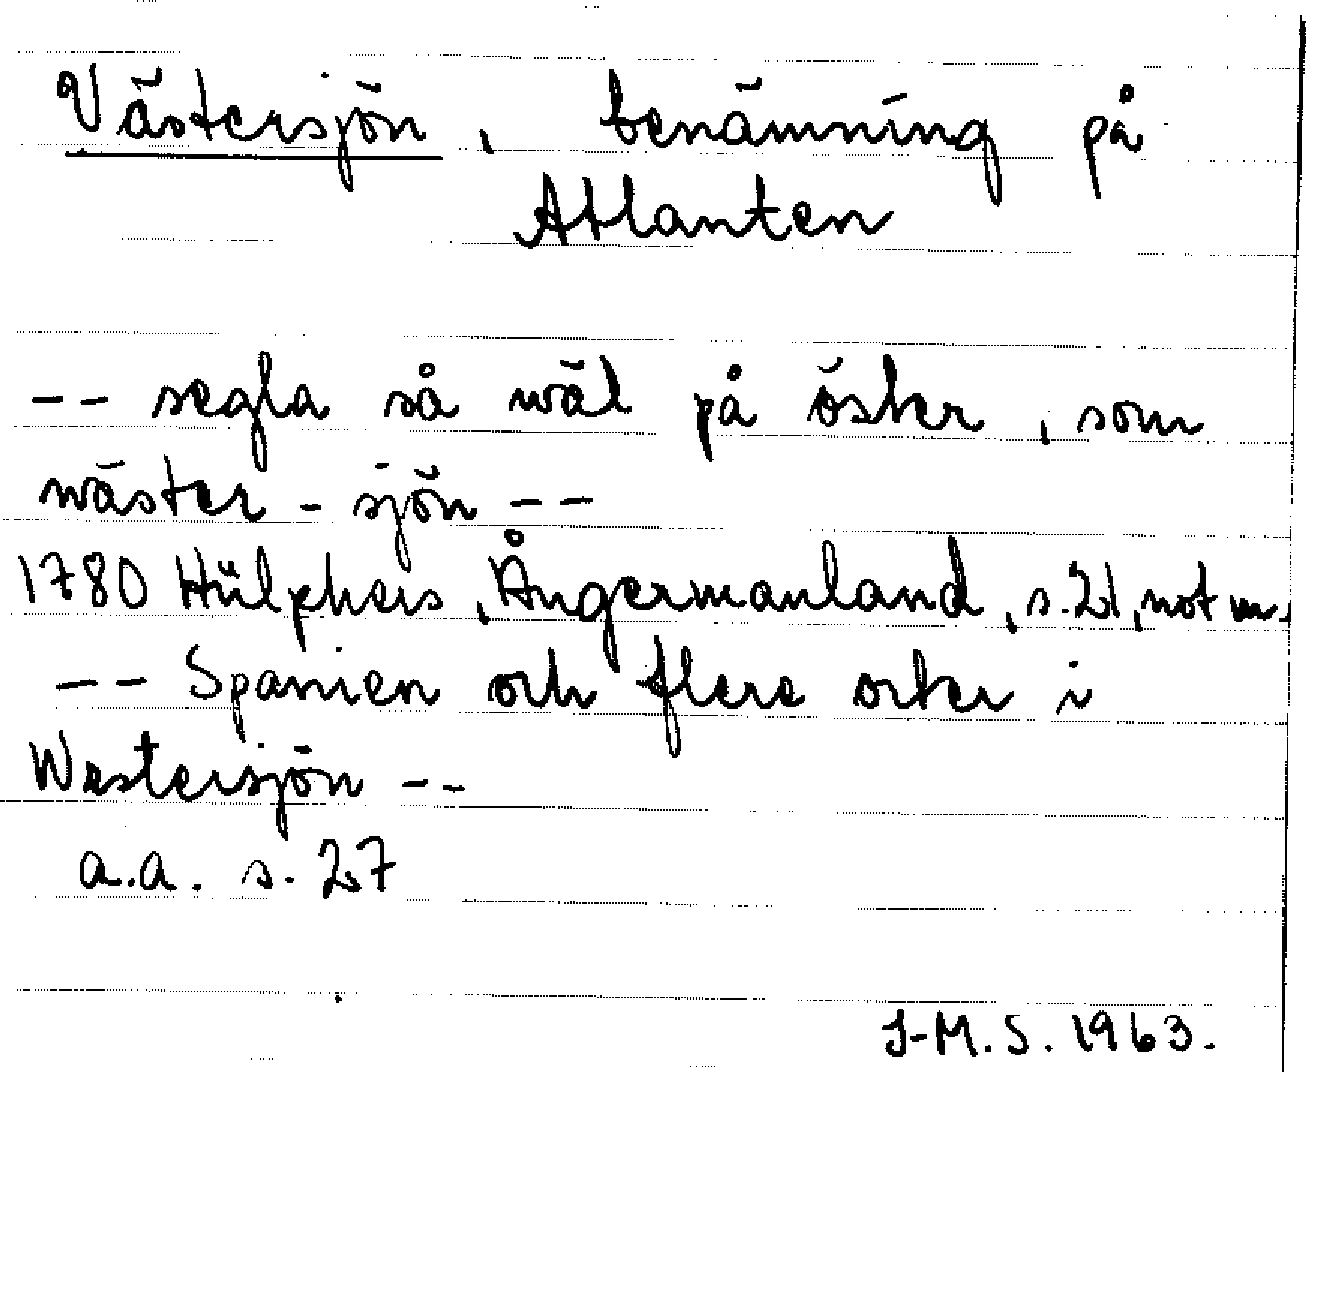 Västersjön, benämning på
Atlanten
-- segla så wäl på öster, som
wäster - sjön --
1780 Hülphers, Ångermanland, s. 21, not m.
-- Spanien och flere orter i
Westersjön --
a.a. s. 27
J-M.S. 1963.